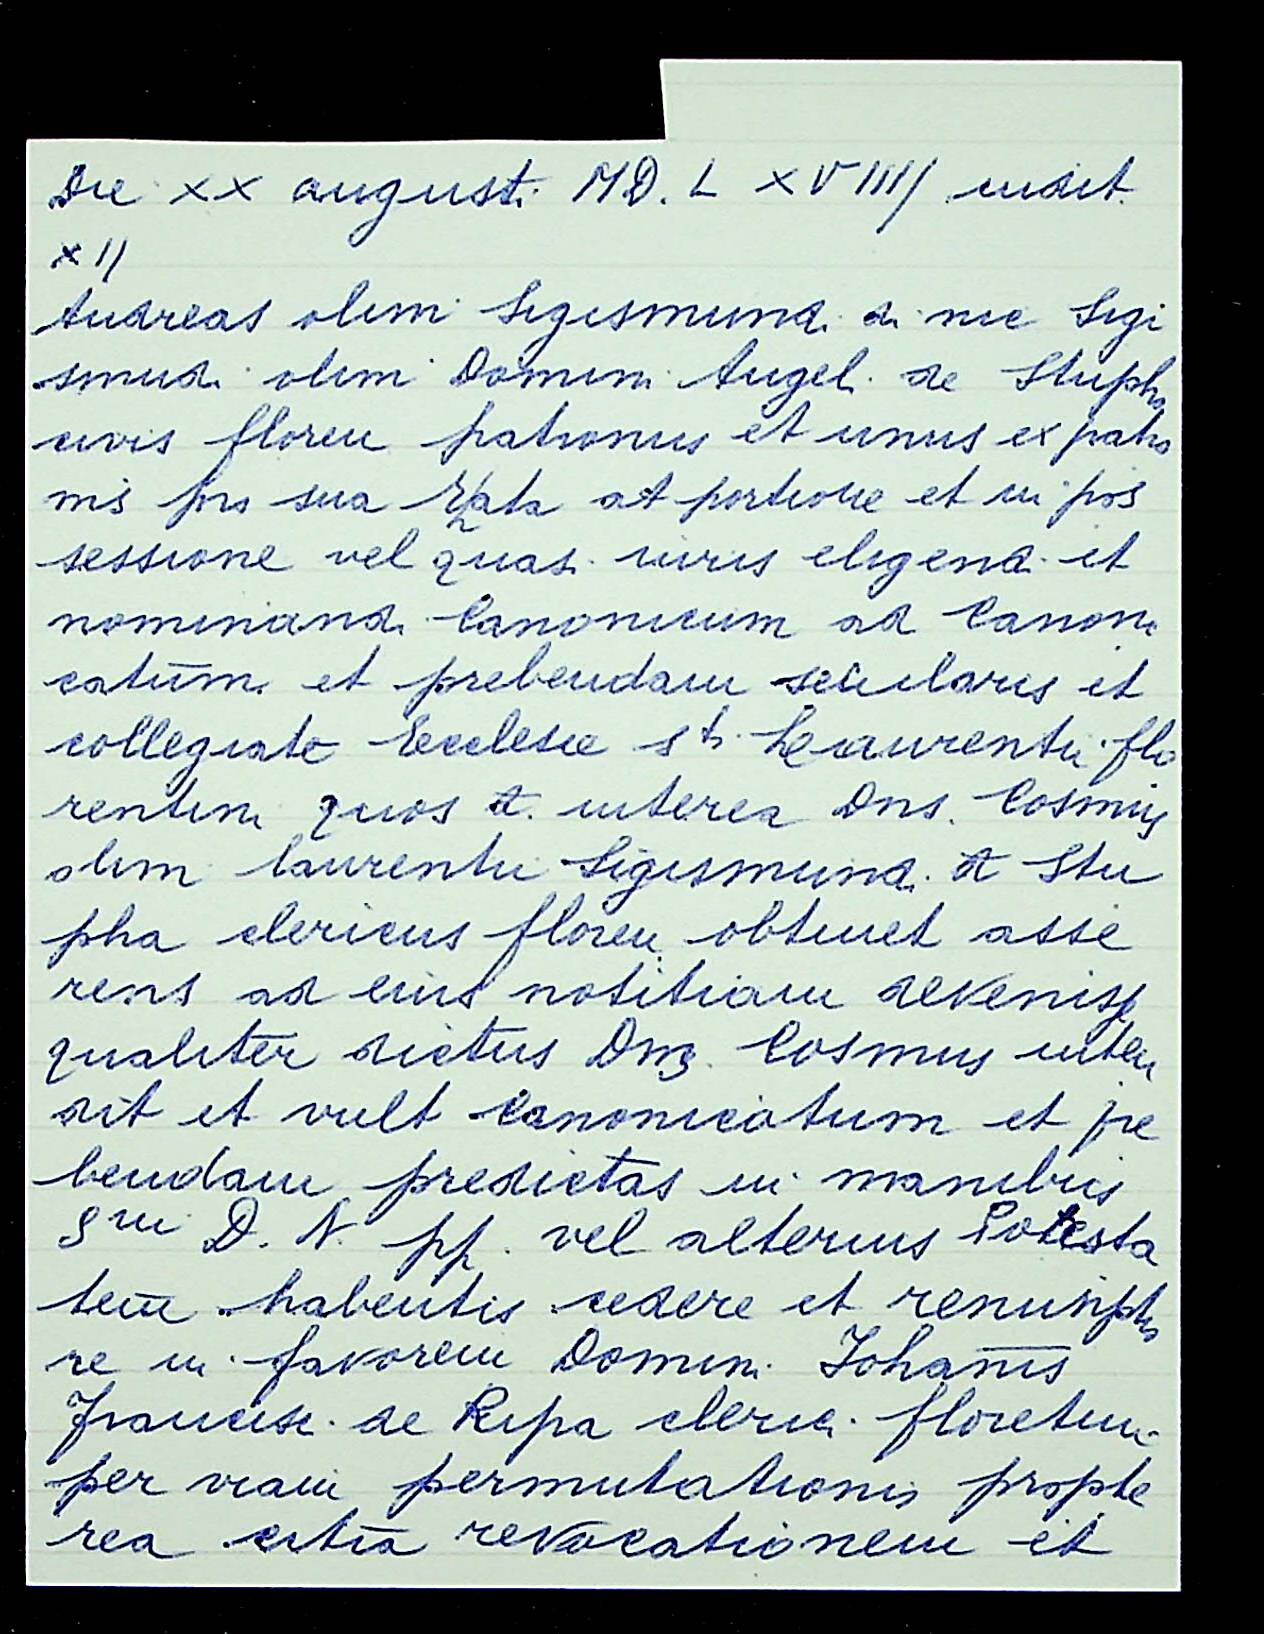 Die XX augusti MD.LXVIIII indit.
XII
Andreas olim Sigismundi di nic Sigi
smudi olim Domini Angeli de Stupha
civis floren patronus et unus ex patro
nis pro sua rata at portione et in pos
sessione vel quasi iuris eligendi et
nominandi Canonicum ad Canoni
catum et prebendam secularis et
collegiate Ecclesie Sti Laurentii flo
rentini quos et interea Dns. Cosmus
olim laurentii Sigismundi et Stu
pha clericus floren obtinet asse
rens ad eius notitiam devenisse
qualiter dictus Dns Cosmus inten
dit et vult Canonicatum et pre
bendam predictas in manibus
Smi D. N. pp. vel alterius Potesta
tem habentis cedere et
re in favorem Domini Johanis
Francisci de Ripa clerici floretini
per viam permutationis propte
rea citra revocationem et